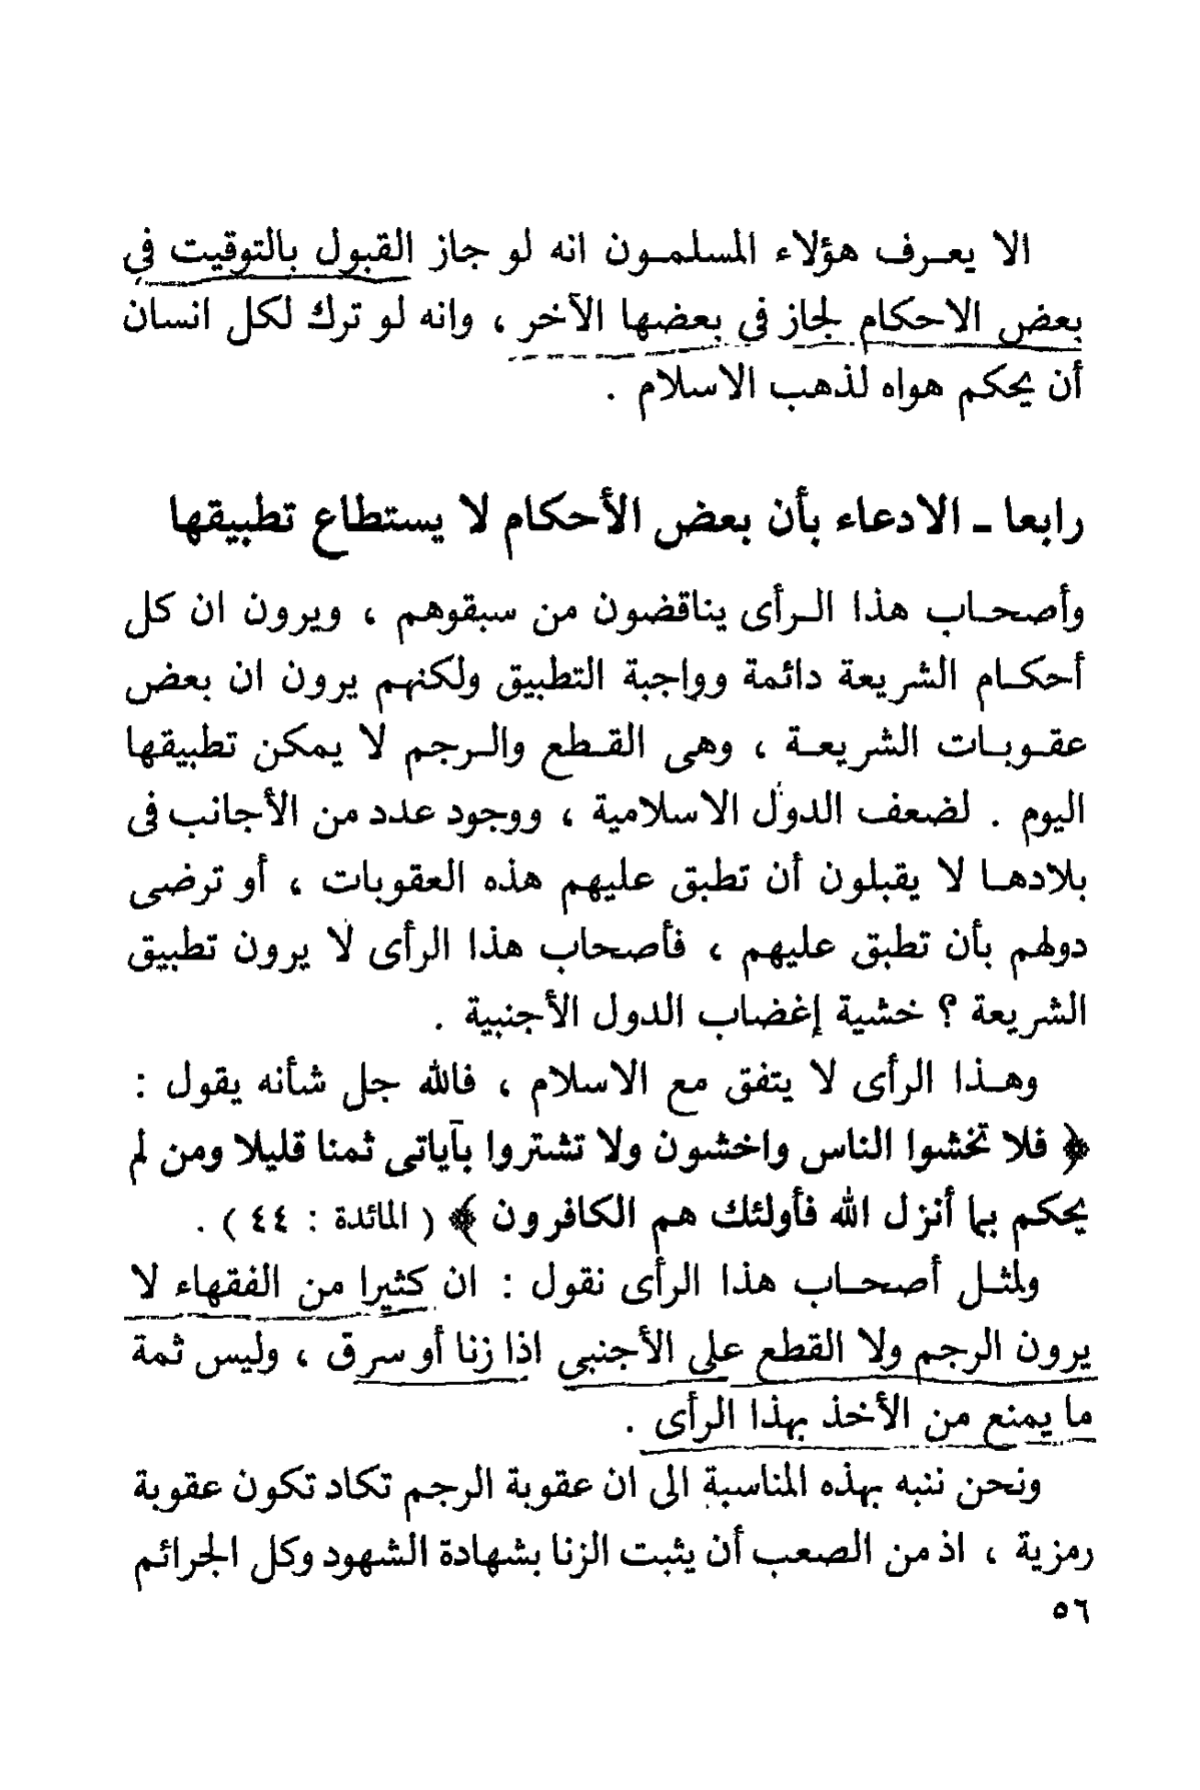 الا يعـرف هؤلاء المسلمـون انه لو جاز القبول بالتوقيت في
بعض الاحكام لجاز في بعضها الآخر ، وانه لو ترك لكل انسان
أن يحكم هواه لذهب الاسلام .
رابعا ـ الادعاء بأن بعض الأحكام لا يستطاع تطبيقها
وأصحـاب هذا الـرأى يناقضون من سبقوهم ، ويرون ان كل
أحكـام الشريعة دائمة وواجبة التطبيق ولكنهم يرون ان بعض
عقـوبـات الشريعـة ، وهى القـطع والـرجم لا يمكن تطبيقها
اليوم . لضعف الدول الاسلامية ، ووجود عدد من الأجانب فى
بلادهـا لا يقبلون أن تطبق عليهم هذه العقوبات ، أو ترضى
دولهم بأن تطبق عليهم ، فأصحاب هذا الرأى لا يرون تطبيق
الشريعة ؟ خشية إغضاب الدول الأجنبية .
وهـذا الرأى لا يتفق مع الاسلام ، فالله جل شأنه يقول :
﴿ فلا تخشوا الناس واخشون ولا تشتروا بآياتى ثمنا قليلا ومن لم
يحكم بما أنزل الله فأولئك هم الكافرون ﴾ ( المائدة : ٤٤ ) .
ولمثـل أصحـاب هذا الرأى نقول : ان كثيرا من الفقهاء لا
يرون الرجم ولا القطع على الأجنبى اذا زنا أو سرق ، وليس ثمة
ما يمنع من الأخذ بهذا الرأى .
ونحن ننبه بهذه المناسبة الى ان عقوبة الرجم تكاد تكون عقوبة
رمزية ، اذ من الصعب أن يثبت الزنا بشهادة الشهود وكل الجرائم
٥٦